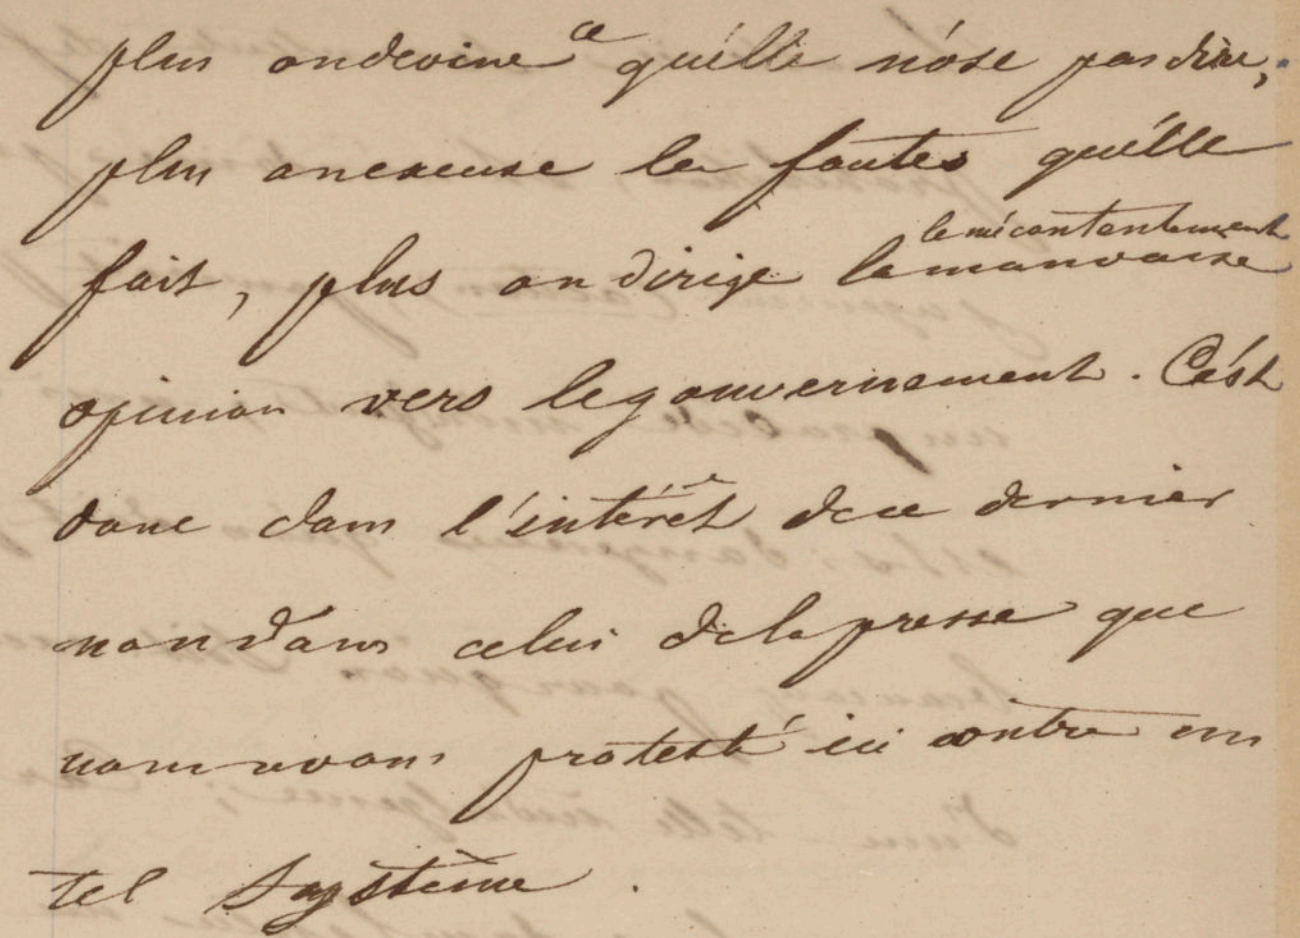 plus on devine ce qu'elle n'ose pas dire,
plus on excuse les fautes qu'elle
le mécontentement
fait, plus on dirige la mauvaise
opinion vers le gouvernement. C'est
donc dans l'intérêt de ce dernier
non dans celui de la presse que
nous avons protesté ici contre un
tel système.